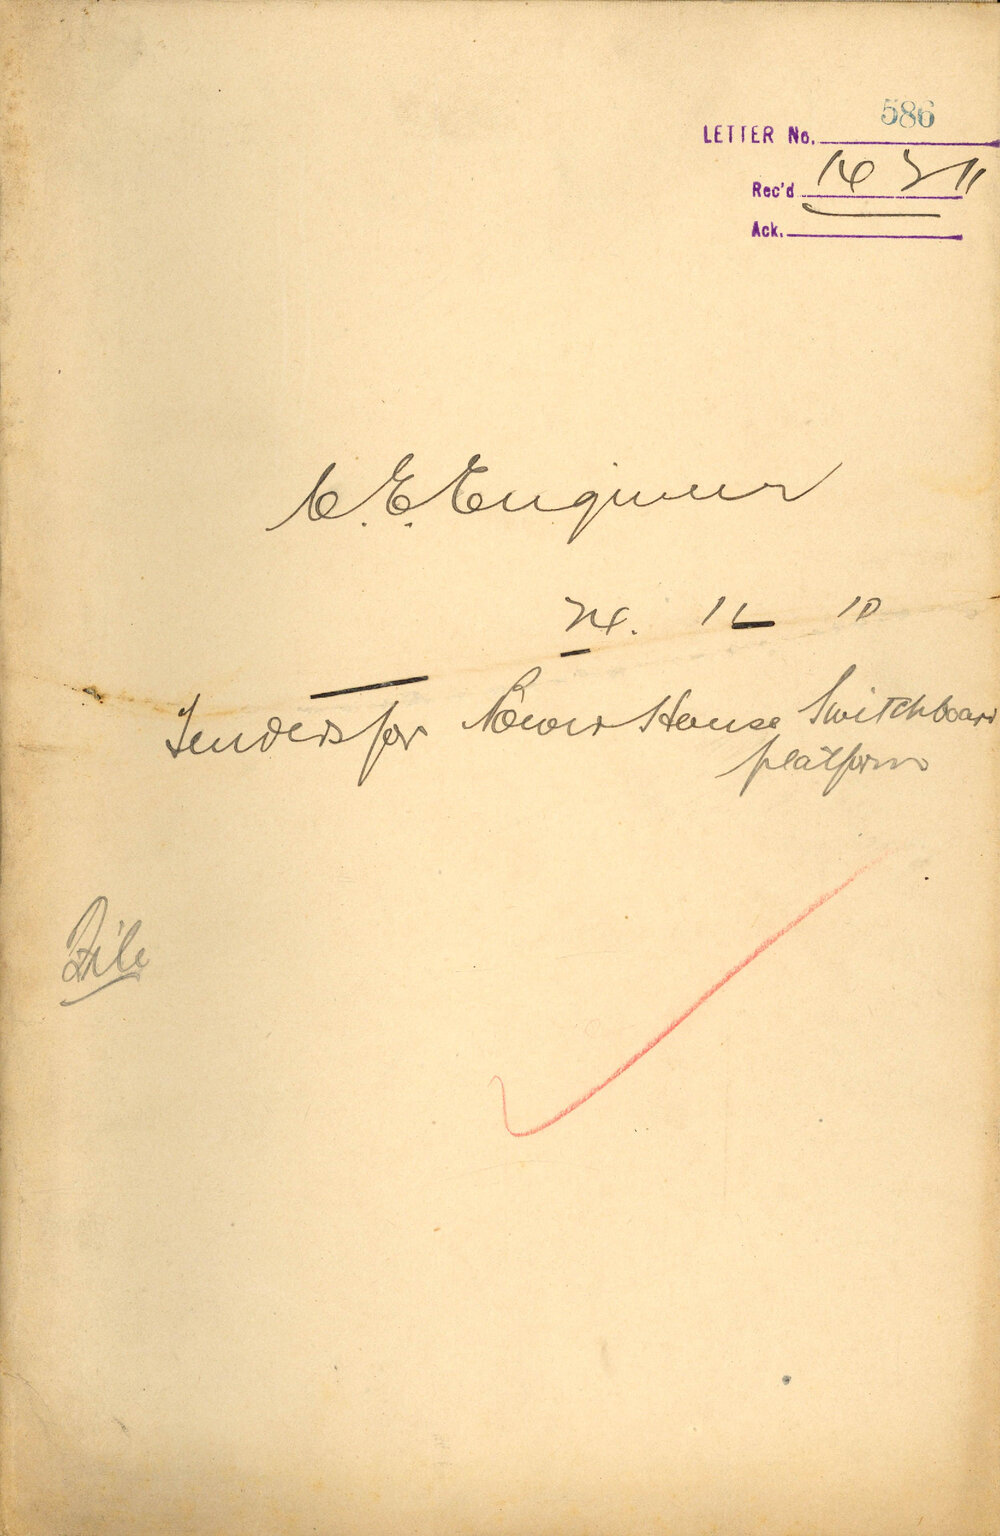 LETTER No. 586
Rec'd 14 3 11
Ack.
C. E. Engineer
24. 12 10
Tenders for Power House Switchboard
platform
File